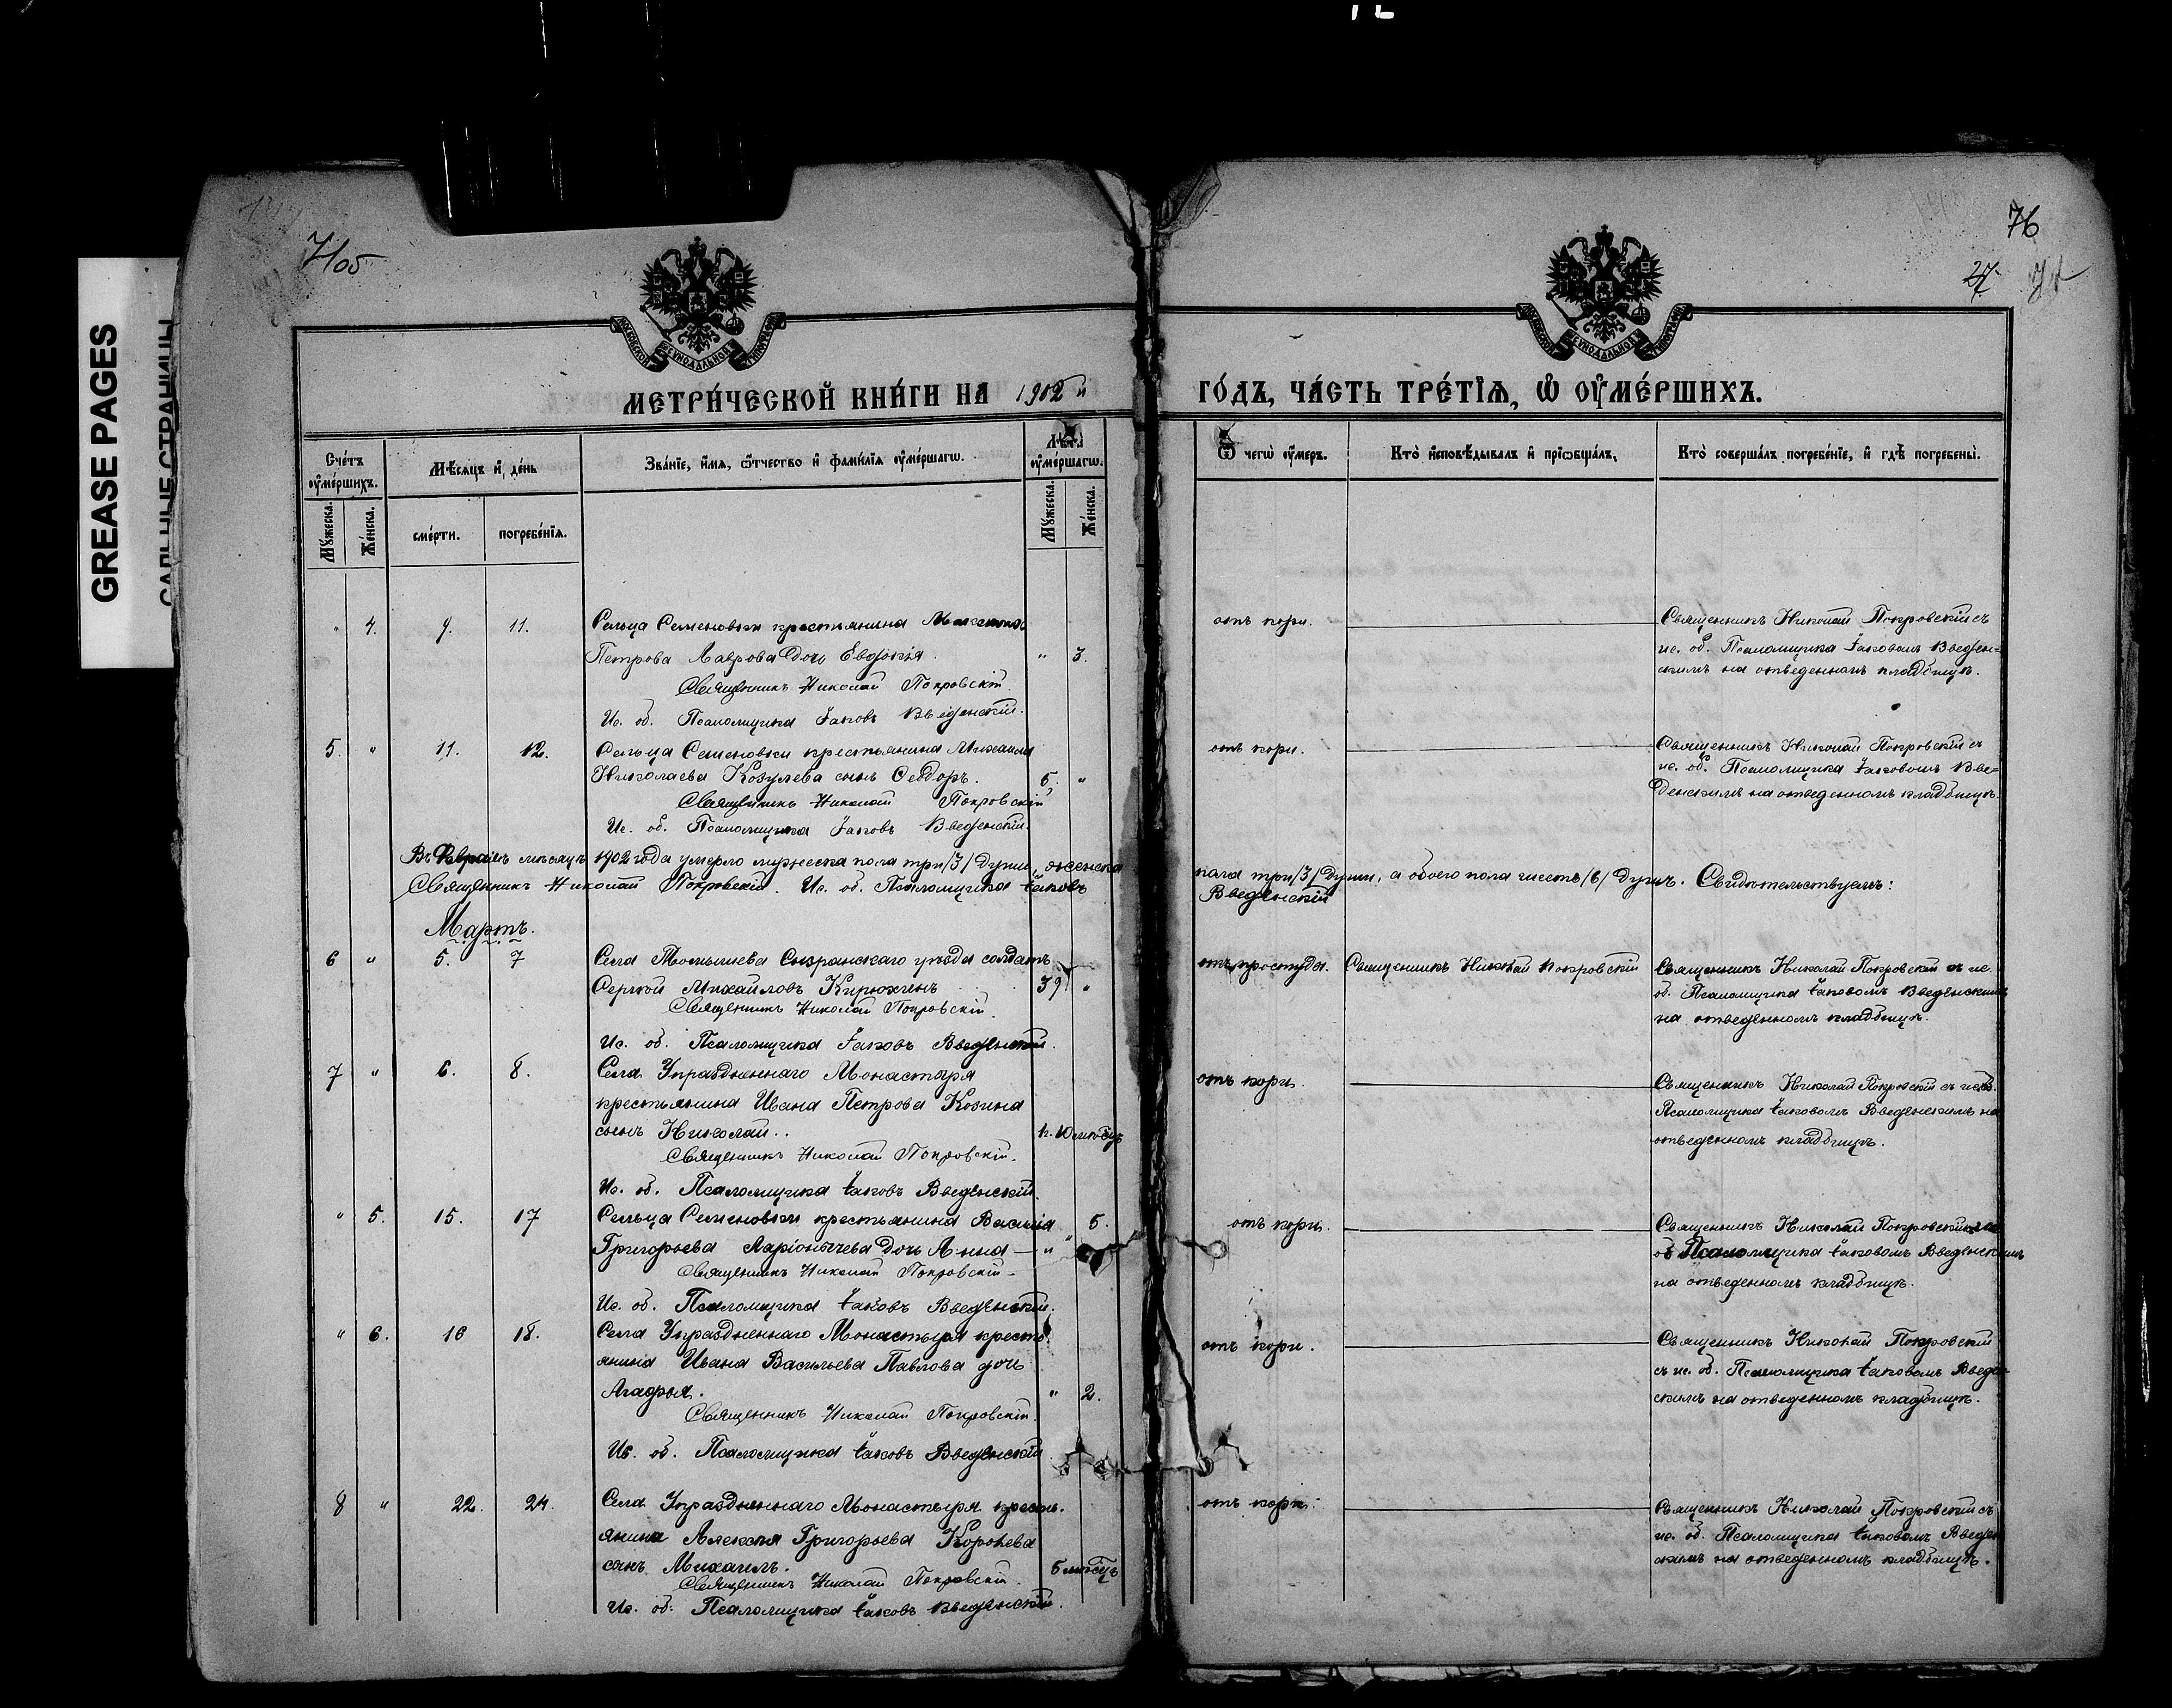 GREASE PAGES
САЛЬНЫЕ СТРАНИЦЫ
76
27
МОСКОВСКОЙ СѴНОДАЛЬНОЙ ТИПОГРАФІИ
МОСКОВСКОЙ СѴНОДАЛЬНОЙ ТИПОГРАФІИ
МЕТРИ́ЧЕСКОЙ КНИ́ГИ НА 1902 й ГО́ДЪ, ЧА́СТЬ ТРЕ́ТІѦ, Ѽ ОУ҆МЕ́РШИХЪ.
Сче́тъ оу҆ме́ршихъ.
Мѣсяцъ и҆ де́нь
Зва́ніе, и҆́мѧ, ѻ҆́тчество и҆ фами́лія оу҆ме́ршагѡ.
Лѣта оу҆ме́ршагѡ.
Ѿ чегѡ̀ оу҆́меръ.
Кто̀ и҆сповѣ́дывалъ и҆ прїѡбща́лъ.
Кто̀ соверша́лъ погребе́ніе, и҆ гдѣ̀ погребены̀.
Мꙋ́жеска.
Же́нска.
сме́рти.
погребе́нїѧ.
Мꙋ́жеска.
Же́нска.
" 4. 9. 11. Сельца Семеновки крестьянина
Петрова Лаврова дочь Евдокія. " 3.
Священникъ Николай Покровскій.
Ис. об. Псаломщика Іаковъ Введенскій.
отъ кори.
Священникъ Николай Покровскій съ
ис. об. Псаломщика Іаковомъ Введен-
скимъ на отведенномъ кладбищѣ.
5. " 11. 12. Сельца Семеновки крестьянина Михаила
Николаева Козулева сынъ Ѳедоръ. 5. "
Священникъ Николай Покровскій
Ис. об. Псаломщика Іаковъ Введенскій.
отъ кори.
Священникъ Николай Покровскій съ
ис. об. Псаломщика Іаковомъ Вве-
денскимъ на отведенномъ кладбищѣ.
Въ Февралѣ мѣсяцѣ 1902 года умерло мужеска пола три /3/ души, женска пола три /3/ души, а обоего пола шесть /6/ душъ. Свидѣтельствуемъ:
Священникъ Николай Покровскій. Ис. об. Псаломщика Іаковъ Введенскій
Мартъ.
6 " 5. 7 Села Томышева Сызранскаго уѣзда солдатъ
Сергѣй Михайловъ Кирюхинъ 39. "
Священникъ Николай Покровскій.
Ис. об. Псаломщика Іаковъ Введенскій.
отъ простуды. Священникъ Николай Покровскій
Священникъ Николай Покровскій съ ис.
об. Псаломщика Іаковомъ Введенскимъ
на отведенномъ кладбищѣ.
7 " 6. 8. Села Упраздненнаго Монастыря
крестьянина Ивана Петрова Козина
сынъ Николай.. 1 г. 10 мѣсяцъ
Священникъ Николай Покровскій.
Ис. об. Псаломщика Іаковъ Введенскій.
отъ кори.
Священникъ Николай Покровскій съ ис. об.
Псаломщика Іаковомъ Введенскимъ на
отведенномъ кладбищѣ.
" 5. 15. 17 Сельца Семеновки крестьянина Василія 5.
Григорьева Ларіонычева дочь Анна — "
Священникъ Николай Покровскій —
Ис. об. Псаломщика Іаковъ Введенскій.
отъ кори.
Священникъ Николай Покровскій
об. Псаломщика Іаковомъ Введенскимъ
на отведенномъ кладбищѣ.
" 6. 16 18. Села Упраздненнаго Монастыря кресть-
янина Ивана Васильева Павлова дочь
Агафья. " 2.
Священникъ Николай Покровскій.
Ис. об. Псаломщика Іаковъ Введенскій
отъ кори.
Священникъ Николай Покровскій
съ ис. об. Псаломщика Іаковомъ Введен-
скимъ на отведенномъ кладбищѣ.
8 " 22. 24. Села Упраздненнаго Монастыря кресть-
янина Алексѣя Григорьева
сынъ Михаилъ. 5 мѣсяцъ
Священникъ Николай Покровскій.
Ис. об. Псаломщика Іаковъ Введенскій.
отъ кори.
Священникъ Николай Покровскій съ
ис. об. Псаломщика Іаковомъ Введен
скимъ на отведенномъ кладбищѣ.